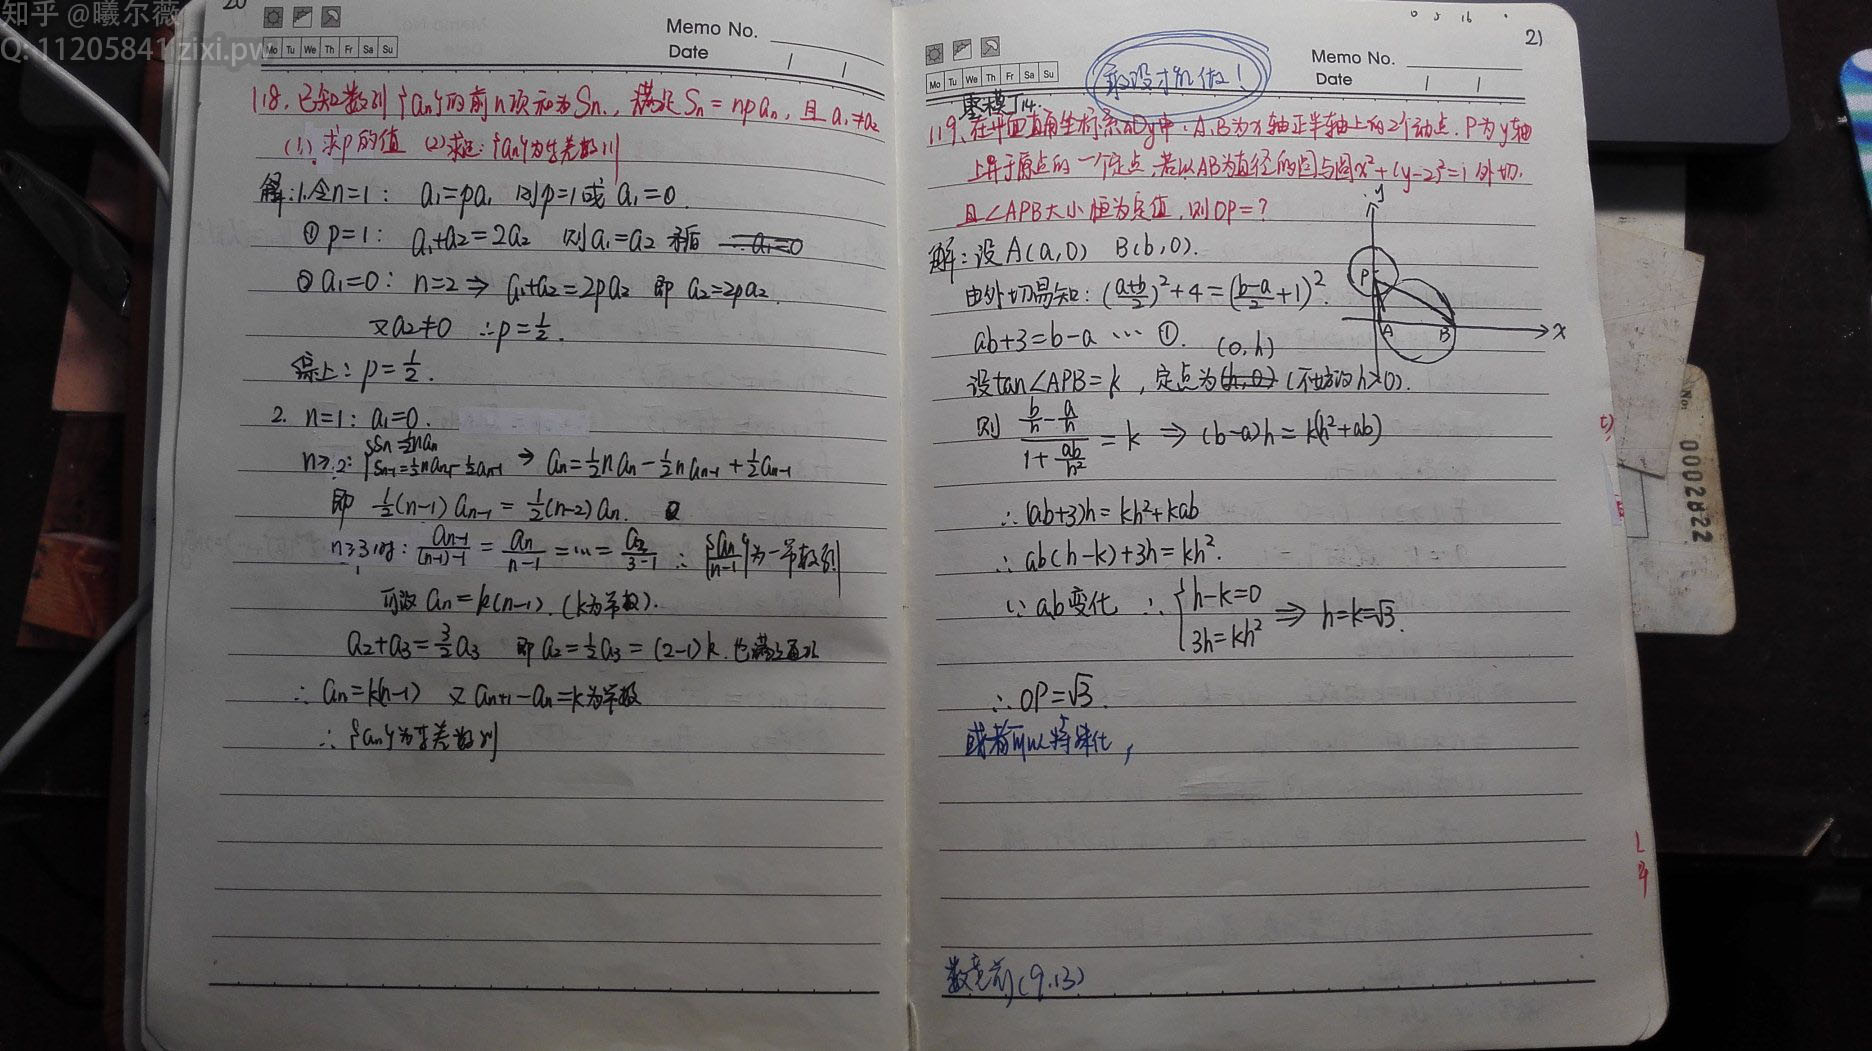 知乎 @曦尔薇
Q: 11205841 zixi.pw
20
Memo No.
Mo Tu We Th Fr Sa Su
Date
118. 已知数列{an}的前n项和为Sn, 满足 Sn = npan, 且 a1≠a2
(1) 求p的值 (2)求证: {an}为等差数列
解: 1. 令n=1: a1=pa1 则p=1或 a1=0.
① p=1: a1+a2=2a2 则a1=a2 矛盾
② a1=0: n=2 ⇒ a1+a2=2pa2 即 a2=2pa2.
又a2≠0 ∴p=1/2.
综上: p=1/2.
2. n=1: a1=0.
n≥2: {Sn=1/2nan
Sn-1=1/2nan-1-1/2an-1 ⇒ an=1/2nan-1/2nan-1+1/2an-1
即 1/2(n-1)an-1=1/2(n-2)an.
n≥3时: an-1/((n-1)-1) = an/(n-1) = … = a3/(3-1) ∴ {an/(n-1)}为一常数列
可设 an=k(n-1). (k为常数).
a2+a3=3/2a3 即 a2=1/2a3=(2-1)k. 也满足通式
∴ an=k(n-1) 又 an+1-an=k为常数
∴ {an}为等差数列
21
Memo No.
Mo Tu We Th Fr Sa Su
Date
14.
119. 在平面直角坐标系xOy中, A,B为x轴正半轴上的2个动点. P为y轴
上异于原点的一个定点, 若以AB为直径的圆与圆x²+(y-2)²=1外切.
且∠APB大小恒为定值, 则OP=?
y
P
A
B
x
解: 设A(a,0) B(b,0).
由外切易知: ((a+b)/2)²+4=((b-a)/2+1)².
ab+3=b-a … ①.
(0,h)
设tan∠APB=k, 定点为(h,0) (不妨设h>0).
则 (b/h-a/h)/(1+ab/h²)=k ⇒ (b-a)h=k(h²+ab)
∴ (ab+3)h=kh²+kab
∴ ab(h-k)+3h=kh².
∵ ab变化 ∴ {h-k=0
3h=kh² ⇒ h=k=√3.
∴ OP=√3.
或者可以特殊化,
数竞前(9.13)
No:
0002822